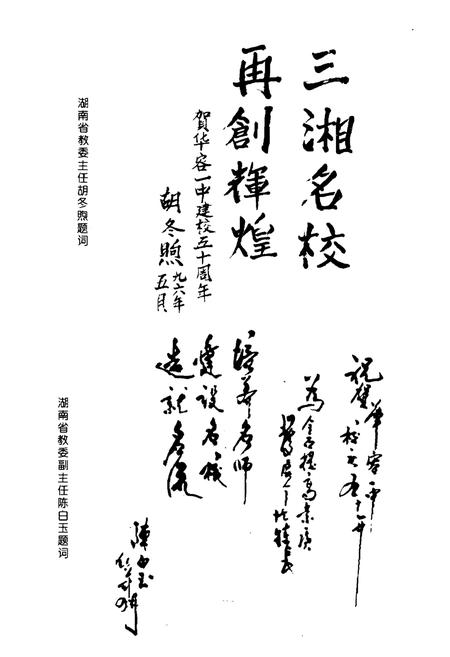 三湘名校
再創輝煌
賀华容一中建校五十周年
胡冬煦
九六年
五月
湖南省教委主任胡冬煦题词
祝賀華容一中
校庆五十
為全面提高素质
发展个性特长
培养名师
建设名校
造就名流
陳白玉
湖南省教委副主任陈白玉题词